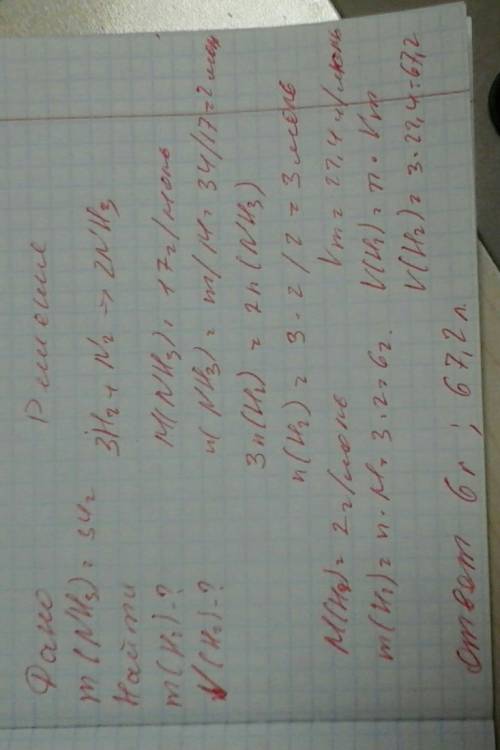 Дано
m(NH₃) = 34г
Найти
m(H₂)-?
V(H₂)-?
Решение
3H₂ + N₂ → 2NH₃
M(NH₃) = 17г/моль
n(NH₃) = m/M = 34/17 = 2 моль
3n(H₂) = 2n(NH₃)
n(H₂) = 3·2/2 = 3 моль
M(H₂) = 2г/моль
m(H₂) = n·M = 3·2 = 6г.
Vm = 22,4 л/моль
V(H₂) = n·Vm
V(H₂) = 3·22,4 = 67,2
Ответ 6г; 67,2 л.